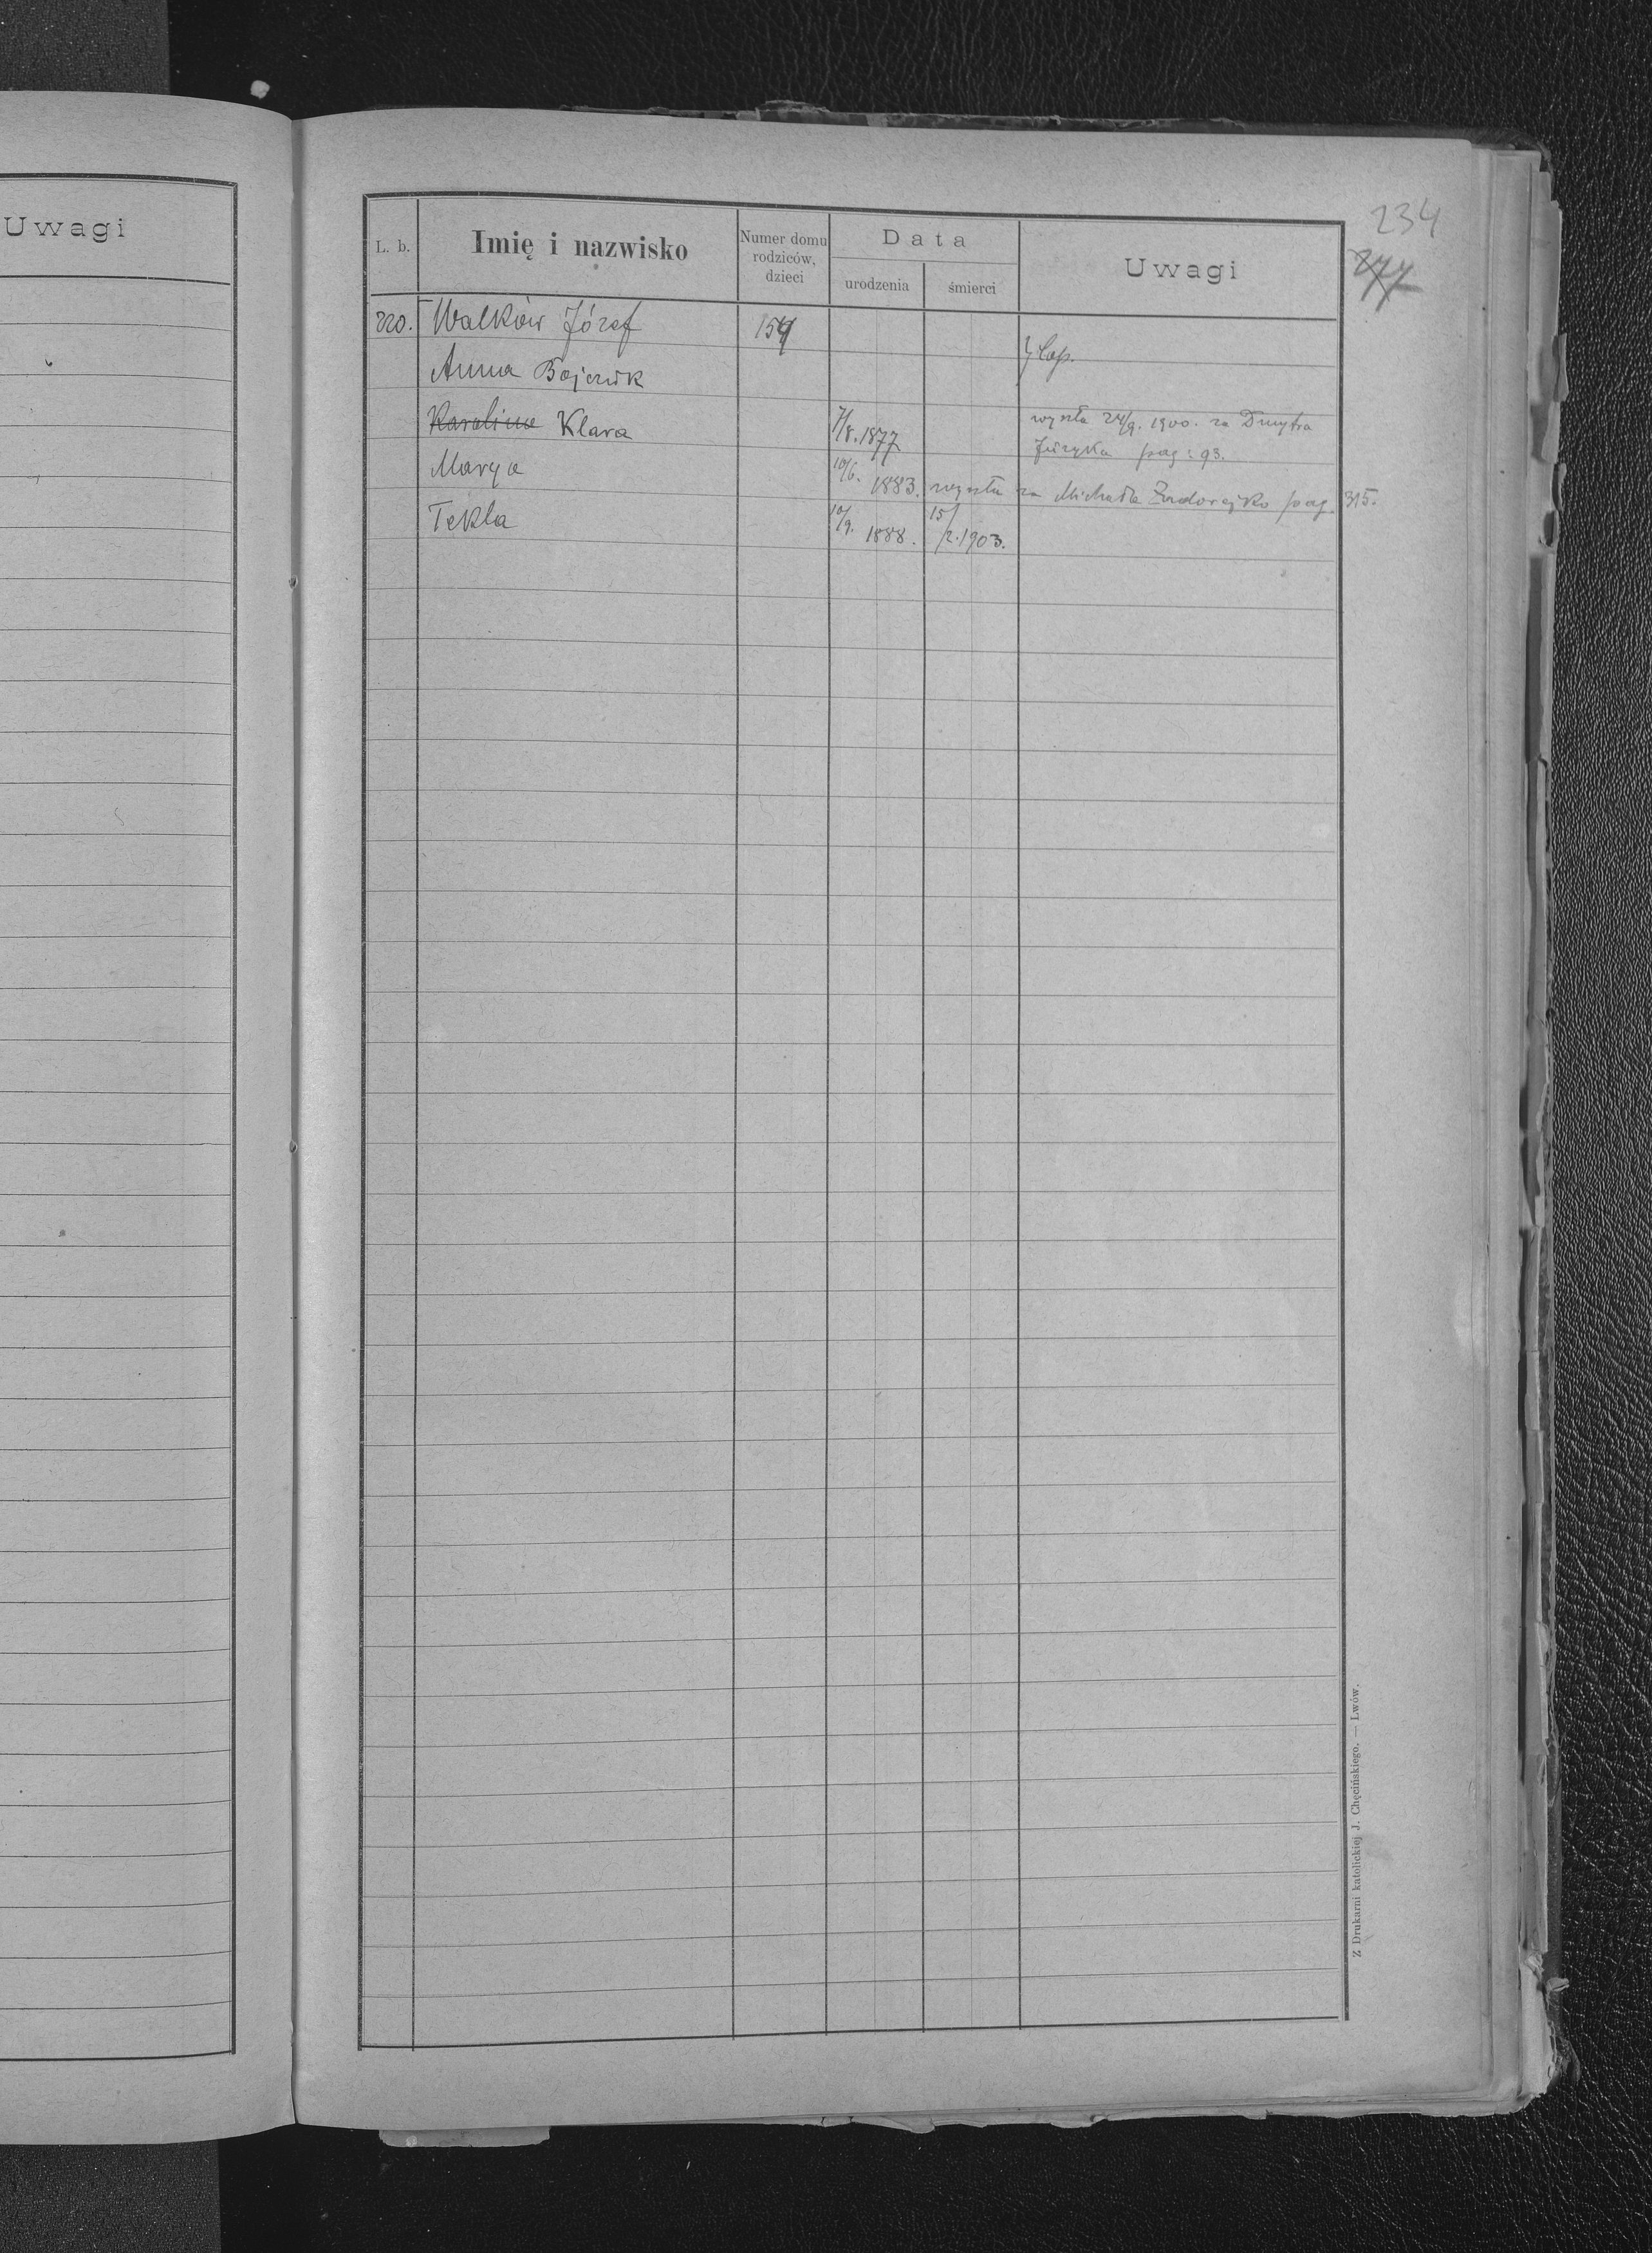 Uwagi
234
277
L. b.
Imię i nazwisko
Numer domu rodziców, dzieci
Data
urodzenia
śmierci
Uwagi
220. Walków Józef 154
Anna Bojczuk
Karolina Klara 7/8. 1877 wyszła 24/9. 1900. za Dmytra
pag: 93.
Marya 10/6. 1883. wyszła za Michała Zadorejko pag. 315.
Tekla 10/9. 1888. 15/2. 1903.
Z Drukarni katolickiej J. Chęcińskiego. — Lwów.